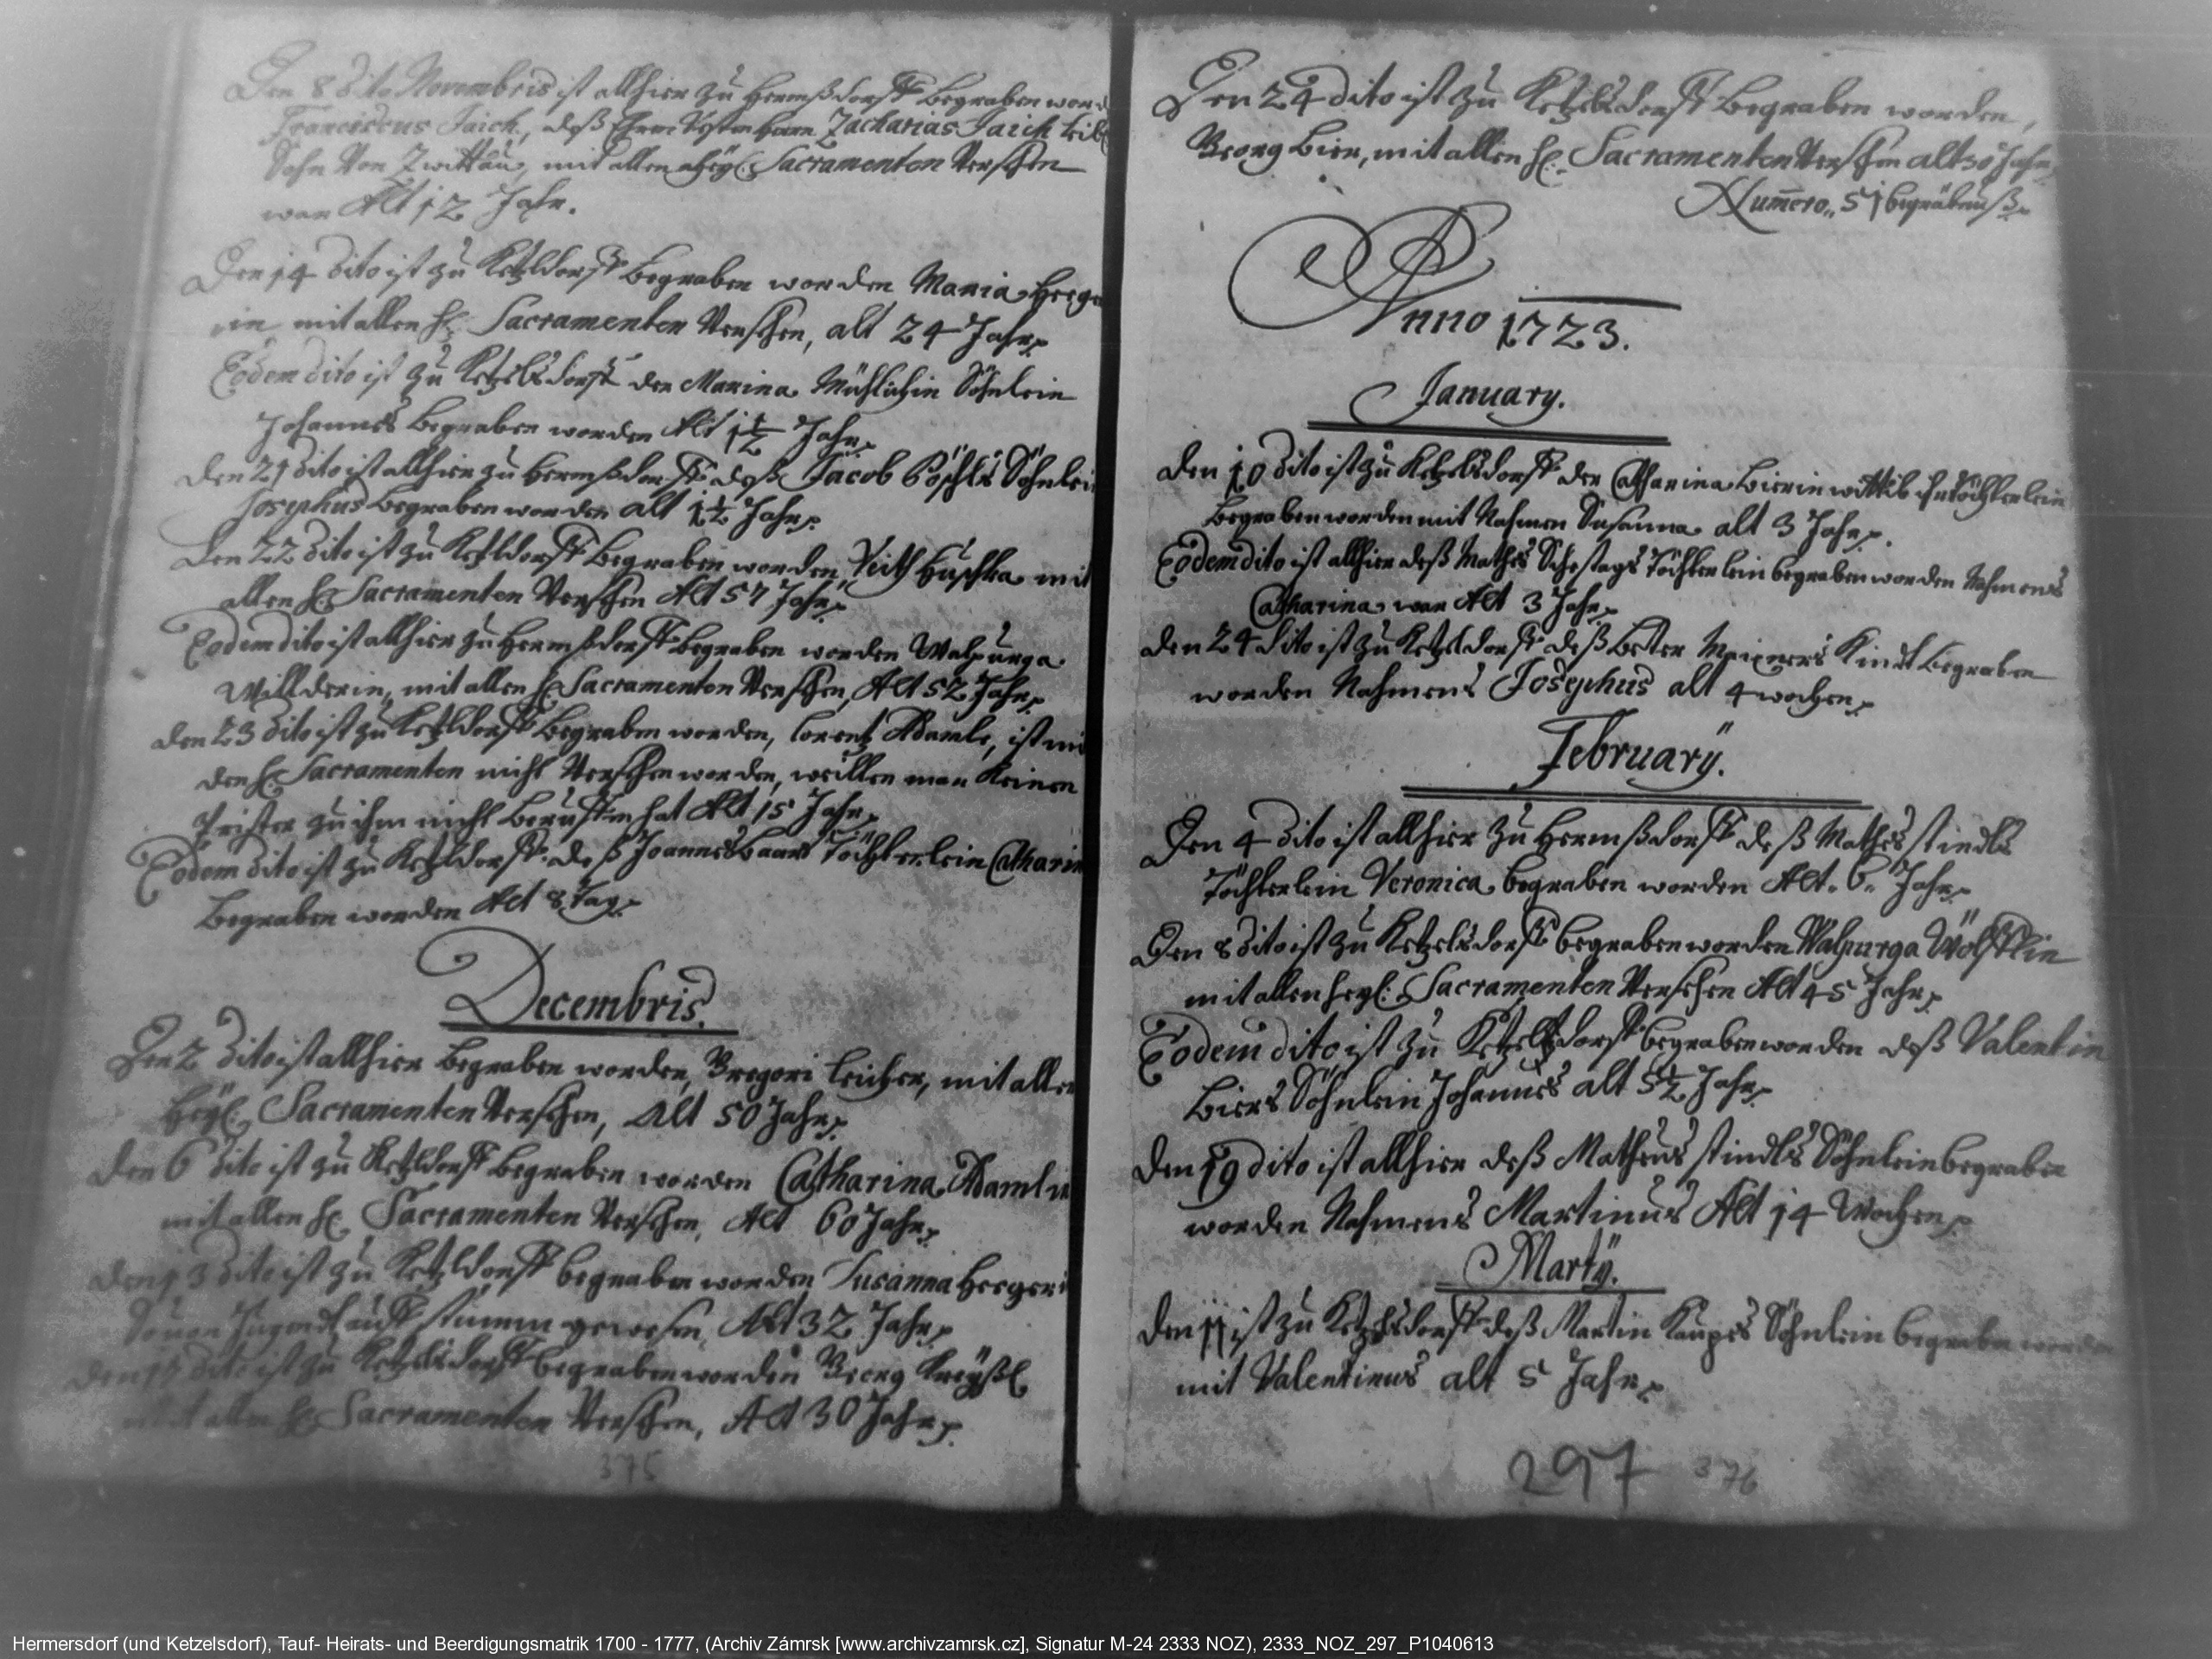 Den 8 dito Novembris ist allhier zu Hermßdorff begraben word
Franciscus Jaich, deß Herrn Zacharias Jaich leib
Sohn Von Zwittau, mit allen heyl: Sacramenten Versehen
war Alt 12 Jahr.
Den 14 dito ist zu Ketzldorff begraben worden Maria Heege
in mit allen H: Sacramenten Versehen, alt 24 Jahr
Eodem dito ist zu Ketzelsdorff der Marina Mühlichin Söhnlein
Johannes begraben worden Alt 1½ Jahr
den 21 dito ist allhier zu Hermßdorff deß Jacob Pöschls Söhnlein
Josephus begraben worden alt 1½ Jahr
den 22 dito ist zu Ketzldorff begraben worden Veith Huschka mit
allen H: Sacramenten Versehen Alt 57 Jahr
Eodem dito ist allhier zu Hermßdorff begraben worden Walpurga
Willderin, mit allen H: Sacramenten Versehen, Alt 52 Jahr
den 23 dito ist zu Ketzldorff begraben worden, Lorentz Adamle, ist mi
den H: Sacramenten nicht Versehen worden, weillen man keinen
Prister zu ihm nicht beruffen hat Alt 15 Jahr
Eodem dito ist zu Ketzldorff deß Joannes Töchterlein Catharin
begraben worden Alt 8 Tag
Decembris.
Den 2 dito ist allhier begraben worden, Gregori Leicher, mit allen
Heyl: Sacramenten Versehen, Alt 50 Jahr
den 6 dito ist zu Ketzldorff begraben worden Catharina Adamlin
mit allen H: Sacramenten Versehen, Alt 60 Jahr
den 13 dito ist zu Ketzldorff begraben worden Susanna Heegeri
So von Jugend auff stumm gewesen, Alt 32 Jahr
den 17 dito ist zu Ketzelsdorff begraben worden Georg Kreyßl
mit allen H: Sacramenten Versehen, Alt 30 Jahr
375
Den 24 dito ist zu Ketzelsdorff begraben worden,
Georg Bier, mit allen H: Sacramenten Versehen alt 30 Jahr
Numero 51 begräbnuß
Anno 1723.
January.
den 10 dito ist zu Ketzelsdorff der Catharina Bierin wittib ihr Töchterlein
begraben worden mit Nahmen Susanna alt 3 Jahr
Eodem dito ist allhier deß Mathes Schestags Töchterlein begraben worden Nahmens
Catharina war Alt 3 Jahr
den 24 dito ist zu Ketzldorff deß Peter Meixners Kindt begraben
worden Nahmens Josephus alt 4 wochen
Februarÿ.
Den 4 dito ist allhier zu Hermßdorff deß Mathes Stindls
Töchterlein Veronica begraben worden Alt 6 Jahr
Den 8 dito ist zu Ketzelsdorff begraben worden Walpurga Wölfflin
mit allen heyl: Sacramenten Versehen Alt 45 Jahr
Eodem dito ist zu Ketzelsdorff begraben worden deß Valentin
Biers Söhnlein Johannes alt 5½ Jahr
den 19 dito ist allhier deß Matheus Stindls Söhnlein begraben
worden Nahmens Martinus Alt 14 Wochen
Martÿ.
den 11 ist zu Ketzelsdorff deß Martin Kaupes Söhnlein begraben worden
mit Valentinus alt 5 Jahr
297 376
Hermersdorf (und Ketzelsdorf), Tauf- Heirats- und Beerdigungsmatrik 1700 - 1777, (Archiv Zámrsk [www.archivzamrsk.cz], Signatur M-24 2333 NOZ), 2333_NOZ_297_P1040613